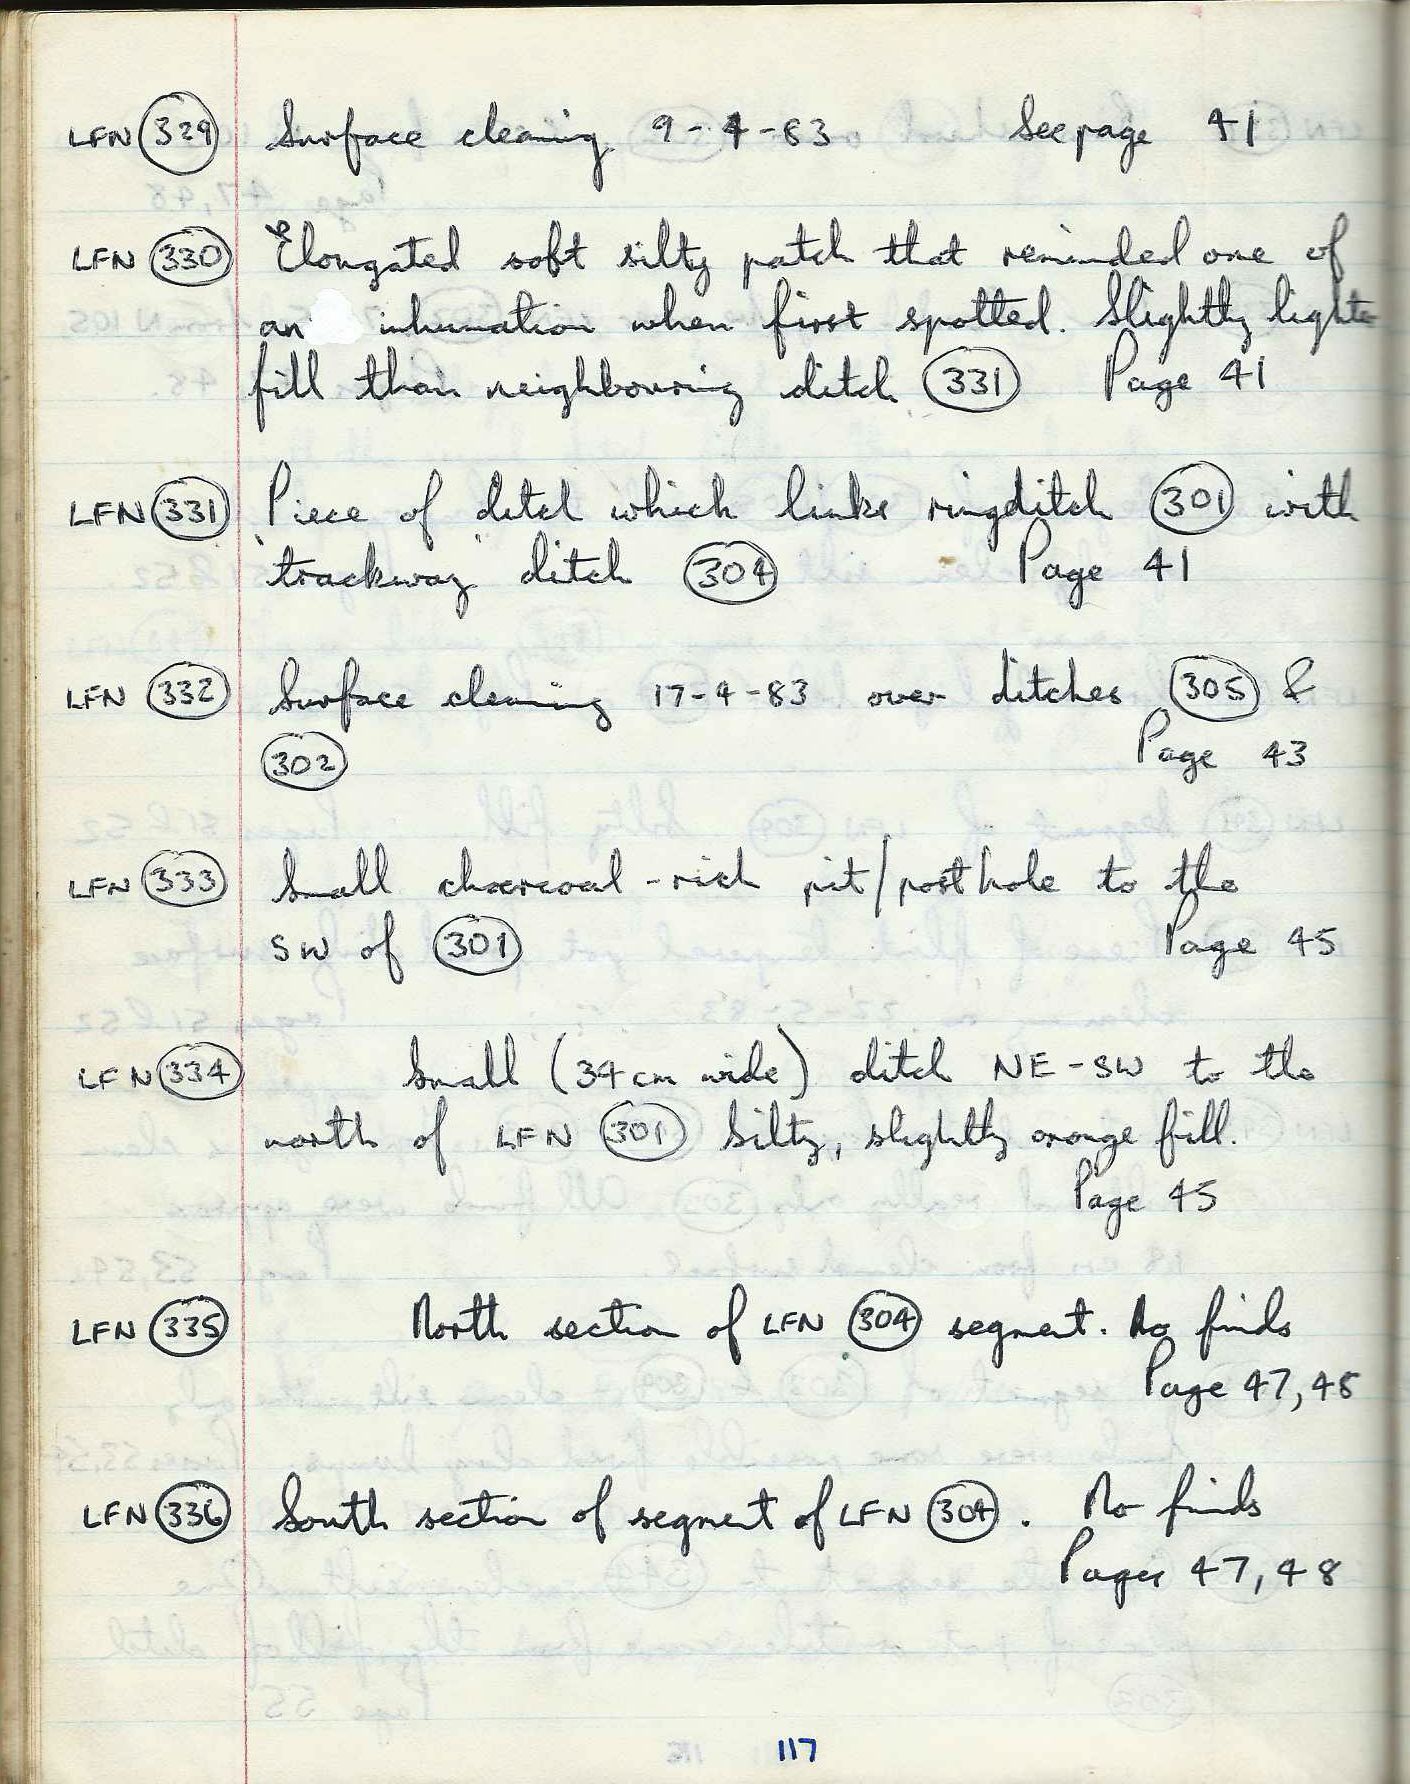 LFN 329 Surface cleaning 9-4-83 See page 41
LFN 330 Elongated soft silty patch that reminded one of
an inhumation when first spotted. Slightly lighter
fill than neighbouring ditch 331 Page 41
LFN 331 Piece of ditch which links ringditch 301 with
'trackway' ditch 304 Page 41
LFN 332 Surface cleaning 17-4-83 over ditches 305 &
302 Page 43
LFN 333 Small charcoal-rich pit/posthole to the
SW of 301 Page 45
LFN 334 Small (34cm wide) ditch NE-SW to the
north of LFN 301 Silty, slightly orange fill.
Page 45
LFN 335 North section of LFN 304 segment. No finds
Page 47,48
LFN 336 South section of segment of LFN 304. No finds
Pages 47,48
117